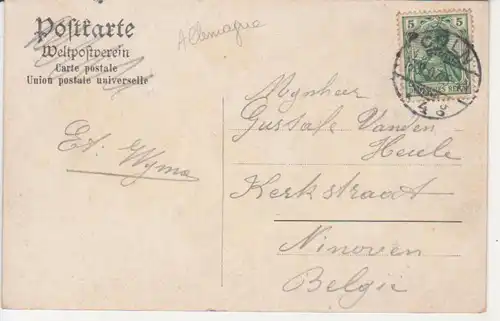 Postkarte
Weltpostverein
Carte postale
Union postale universelle
Allemagne
5 5
CÖLN
DEUTSCHES REICH
Mynheer
Gustave Vanden
Heule
Kerkstraat
Ninoven
Belgïe
Et. Wyma